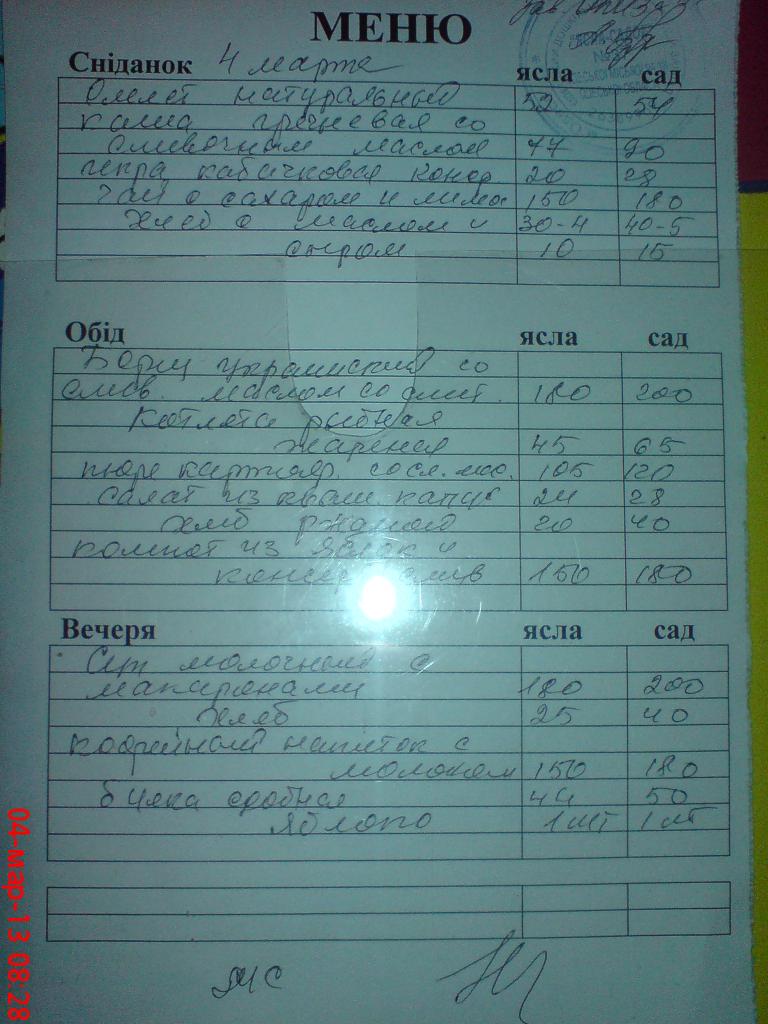 МЕНЮ
Сніданок 4 марта ясла сад
Омлет натуральный 52 54
каша гречневая со
сливочным маслом 77 90
икра кабачковая консер 20 28
чай с сахаром и лимо 150 180
хлеб с маслом и 30-4 40-5
сыром 10 15
Обід ясла сад
Борщ украинский со
слив. маслом со смет. 180 200
котлета рыбная
жареная 45 65
пюре картоф. со сл. мас. 105 120
салат из кваш капус 24 28
хлеб ржаной 20 40
компот из яблок и
консер слив 150 180
Вечеря ясла сад
Суп молочный с
макаронами 180 200
хлеб 25 40
кофейный напиток с
молоком 150 180
булка сдобная 44 50
яблоко 1 шт 1 шт
м/с
04-мар-13 08:28